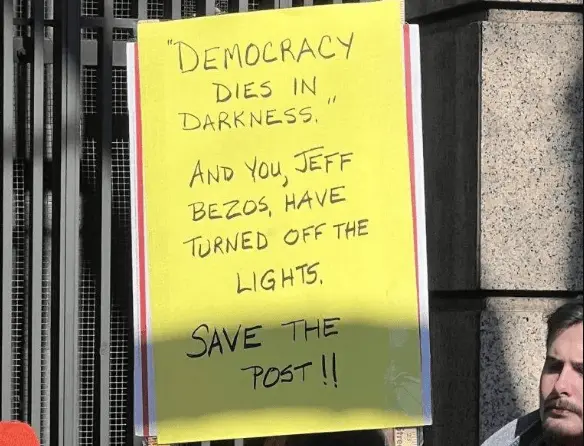 "DEMOCRACY
DIES IN
DARKNESS."
AND YOU, JEFF
BEZOS, HAVE
TURNED OFF THE
LIGHTS.
SAVE THE
POST!!